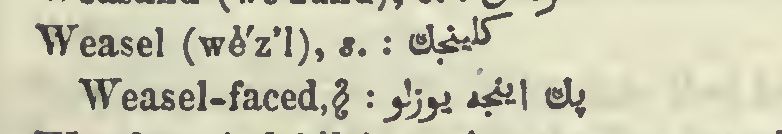 Weasel (wè´z'l), s. : كلينجك
Weasel-faced, : پك اينجه يوزلو